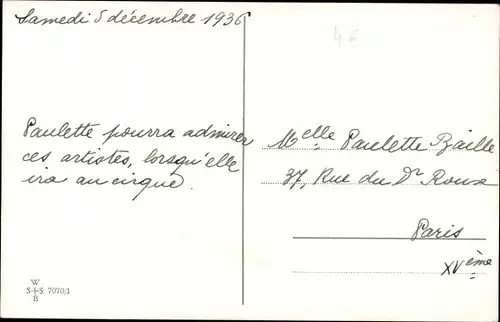 Samedi 5 décembre 1936
4€
Paulette pourra admirer
ces artistes, lorsqu'elle
ira au cirque.
Melle Paulette Baille
37, Rue du Dr Roux
Paris
XVème
W
S+S 7070/1
B